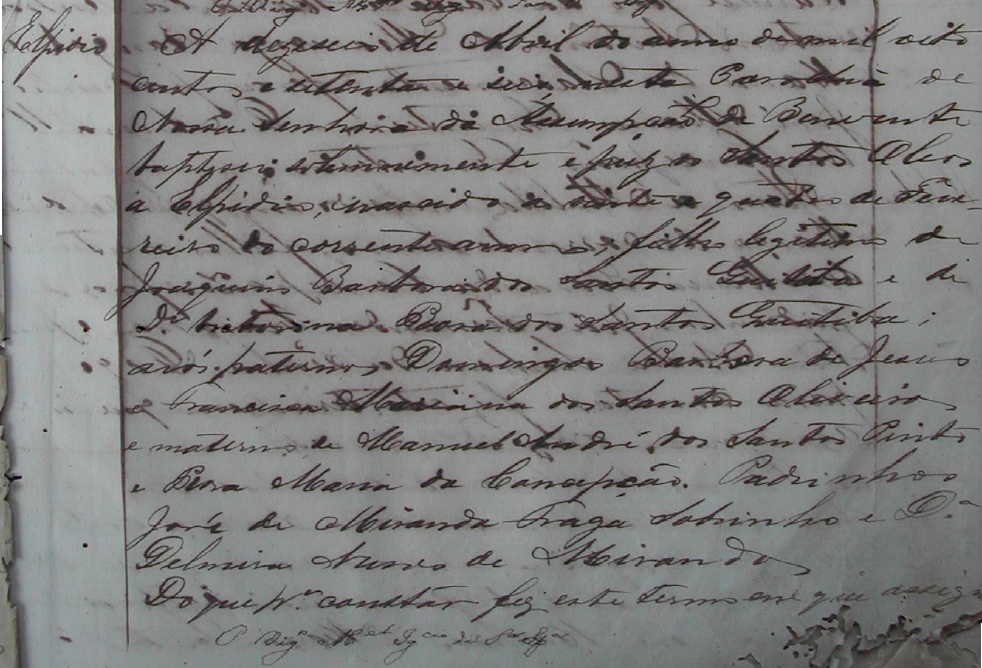 Elpidio
A dezeseis de Abril do anno de mil oito
centos e setenta e seis nesta Parochia de
Nossa Senhora da Assumpção de Benevente
baptisei solemnemente e puz os Santos Oleos
a Elpidio, nascido a vinte e quatro de Feve-
reiro do corrente anno, filho legitimo de
Joaquim Barbosa dos Santos e de
D.ª Victorina Rosa dos Santos Guatiba;
avós paternos Domingos Barbosa de Jesus
e Francisca Mariana dos Santos Oliveira
e maternos de Manuel André dos Santos Pinto
e Rosa Maria da Concepção. Padrinhos
José de Miranda Fraga Sobrinho e D.ª
Delmira Nunes de Miranda
Do que p.ª constar fiz este termo em que assign